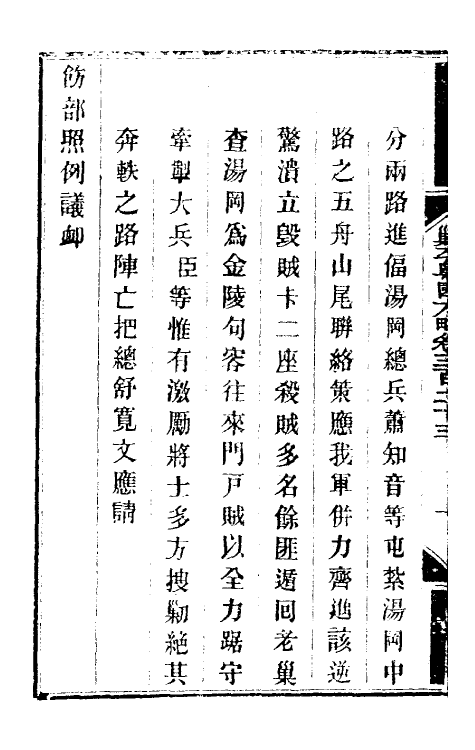 分兩路進偪湯岡總兵蕭知音等屯紮湯岡中
路之五舟山尾聯絡策應我軍併力齊進該逆
驚潰立毀賊卡二座殺賊多名餘匪遁回老巢
查湯岡爲金陵句容往來門戸賊以全力踞守
牽掣大兵臣等惟有激勵將士多方搜勦絶其
奔軼之路陣亡把總舒寬文應請
飭部照例議卹